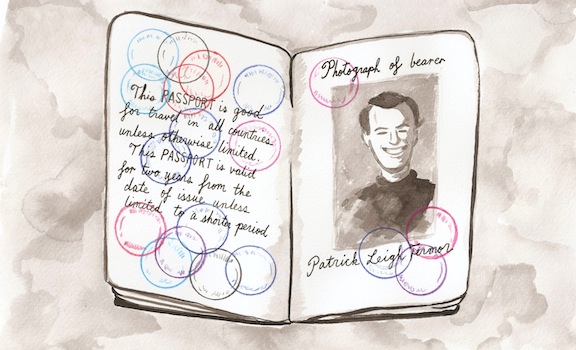 This PASSPORT is good
for travel in all countries
unless otherwise limited.
This PASSPORT is valid
for two years from the
date of issue unless
limited to a shorter period
Photograph of bearer
Patrick Leigh Fermor